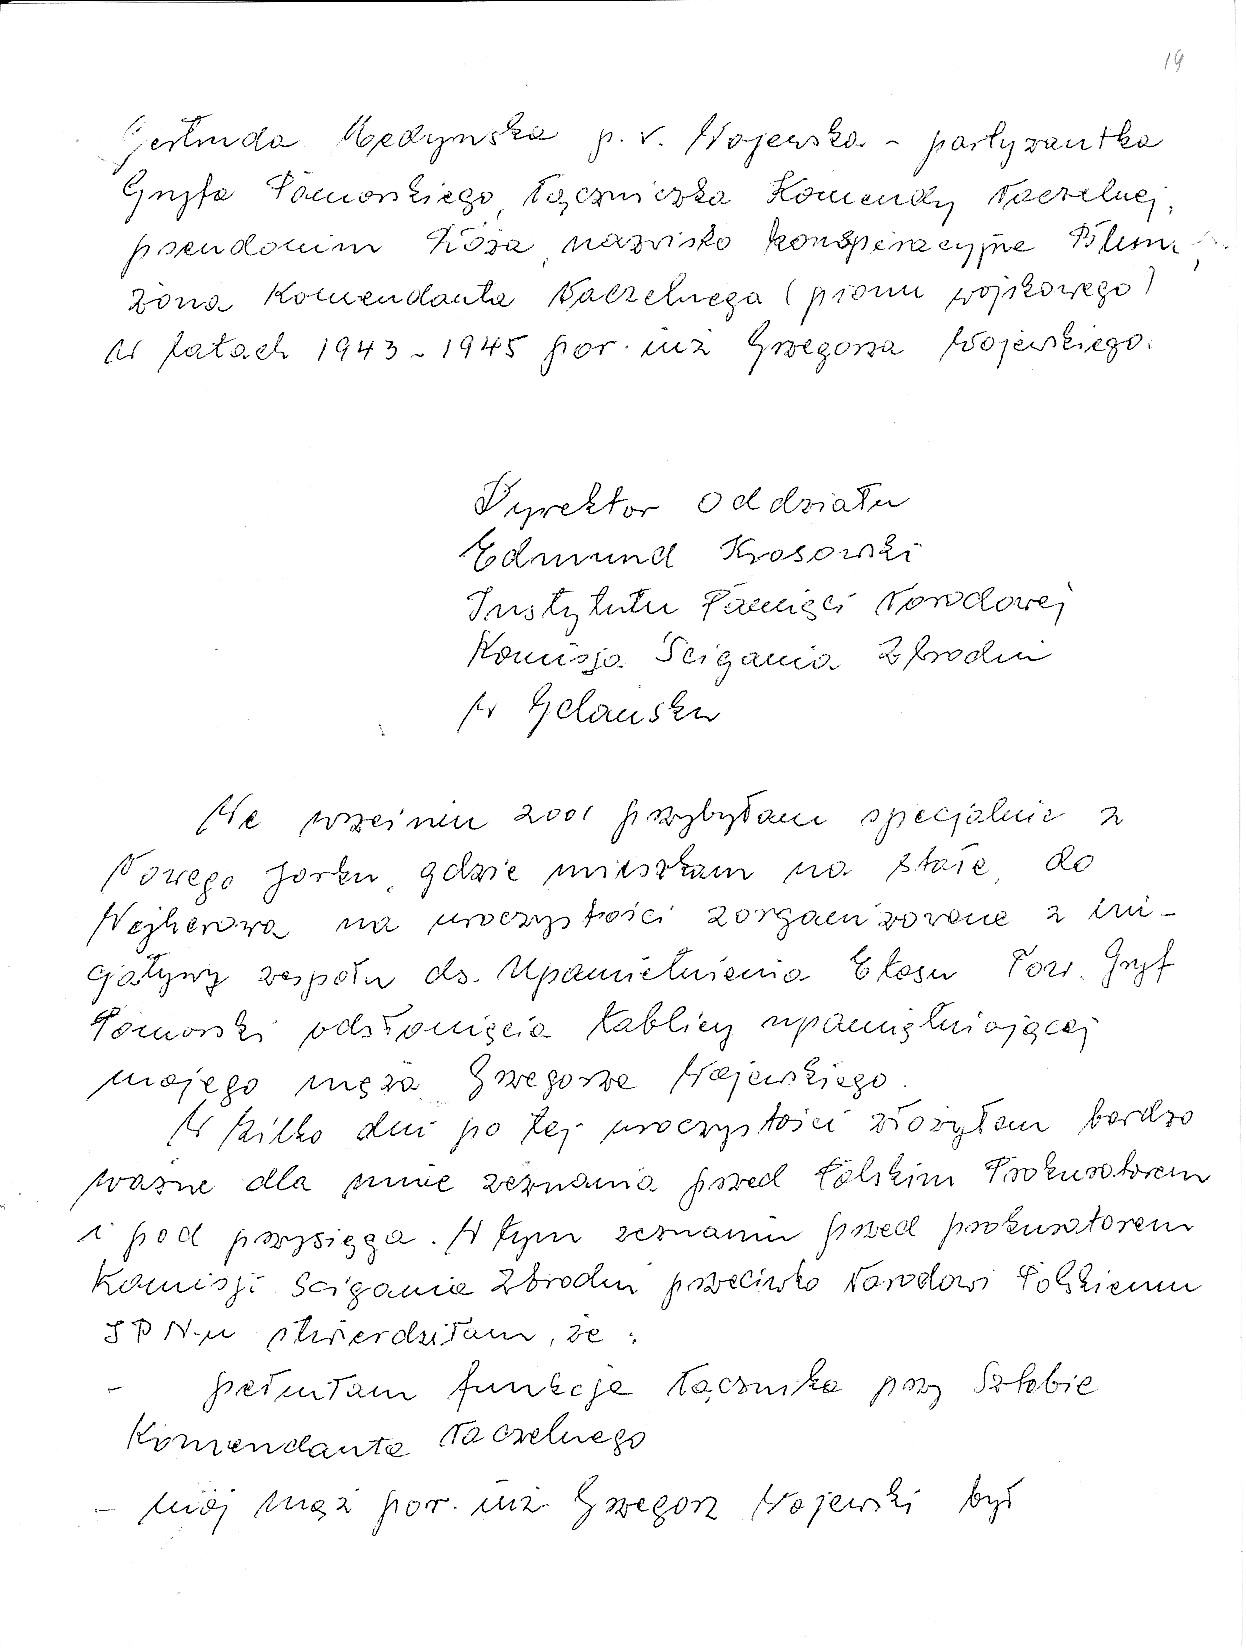 19
Gertruda Mędzyńska p. v. Wojewska - partyzantka
Gryfa Pomorskiego, łączniczka Komendy Naczelnej,
pseudonim Róża, nazwisko konspiracyjne Blum,
żona Komendanta Naczelnego (pionu wojskowego)
w latach 1943-1945 por. inż Grzegorza Wojewskiego.
Dyrektor Oddziału
Edmund Krasowski
Instytutu Pamięci Narodowej
Komisja Ścigania Zbrodni
w Gdańsku
We wrześniu 2001 przybyłam specjalnie z
Nowego Jorku, gdzie mieszkam na stałe, do
Wejherowa na uroczystości zorganizowane z ini-
cjatywy zespołu ds. Upamietnienia Etosu Tow. Gryf
Pomorski odsłonięcia tablicy upamiętniającej
mojego męża Grzegorza Wojewskiego.
W kilka dni po tej uroczystości złożyłam bardzo
ważne dla mnie zeznania przed Polskim Prokuratorem
i pod przysięgą. W tym zeznaniu przed prokuratorem
Komisji Ścigania Zbrodni przeciwko Narodowi Polskiemu
IPN-u stwierdziłam, że:
- pełniłam funkcję łącznika przy Sztabie
Komendanta Naczelnego
- mój mąż por. inż. Grzegorz Wojewski był